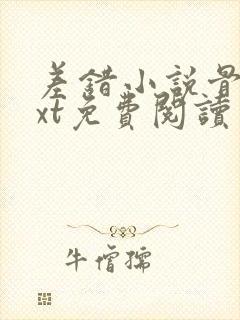 差錯小説骨
xt免費閱讀
牛僧孺